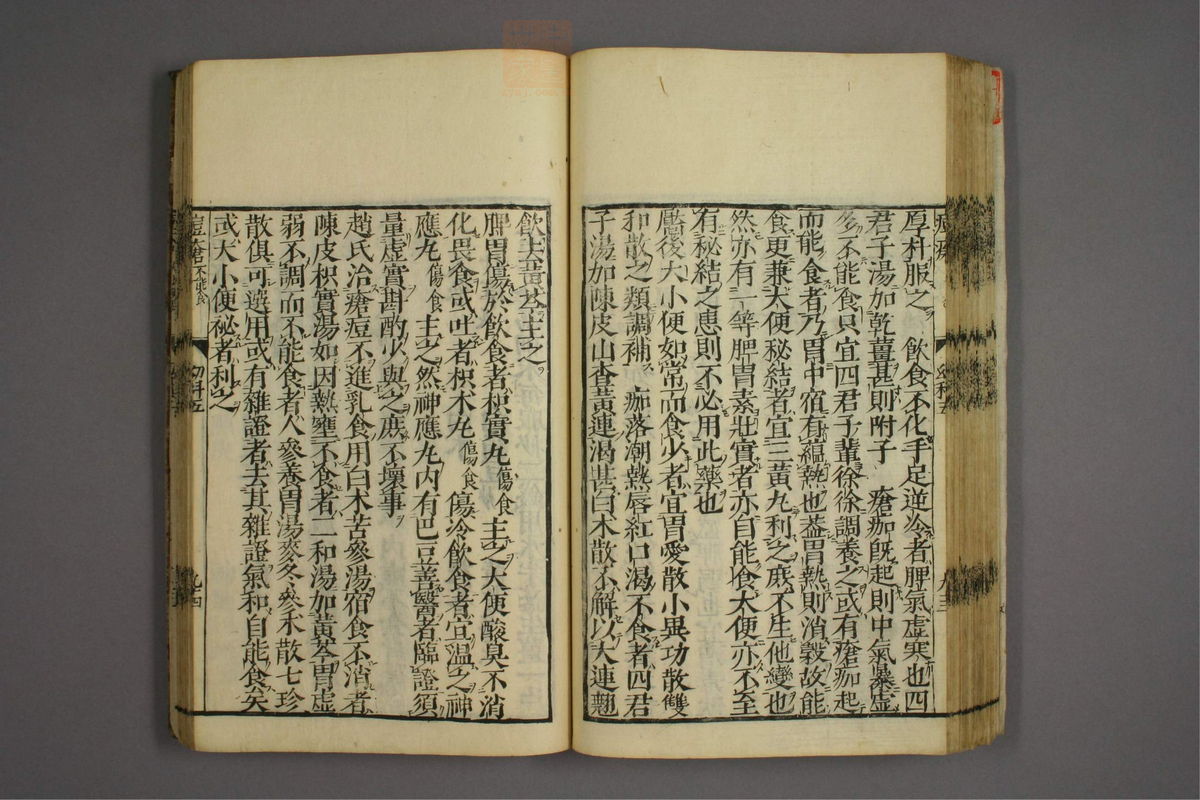 厚朴服之　飲食不化手足逆冷者脾氣虛寒也四
君子湯加乾薑甚則附子　瘡痂既起則中氣暴虛
多不能食只宜四君子輩徐徐調養之或有瘡痂起
而能食者乃胃中宿有蘊熱也蓋胃熱則消穀故能
食更兼大便秘結者宜三黃丸利之庶不生他變也
然亦有一等肥胃素壯實者亦自能食大便亦不至
有秘結之患則不必用此藥也
靨後大小便如常而食少者宜胃愛散小異功散雙
和散之類調補　痂落潮熱唇紅口渴不食者四君
子湯加陳皮山査黃連渴甚白朮散不解以大連翹
飲去黃芩主之
脾胃傷於飲食者枳實丸傷食主之大便酸臭不消
化畏食或吐者枳朮丸傷食傷冷飲食者宜溫之神
應丸傷食主之然神應丸内有巴豆善醫者臨證須
量虛實斟酌少與之庶不壞事
趙氏治瘡痘不進乳食用白朮苦參湯宿食不消者
陳皮枳實湯如因熱壅不食者二和湯加黃芩胃虛
弱不調而不能食者人參養胃湯麥冬參朮散七珍
散俱可選用或有雜證者去其雜證氣和自能食矣
或大小便祕者利之
痘瘡不能食
幼科五
九四